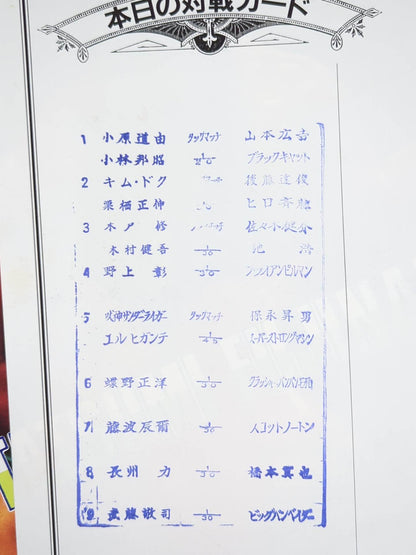 本日の対戦カード
1 小原道由 タッグマッチ 山本広吉
小林邦昭 1/20 ブラックキャット
2 キム・ドク 後藤達俊
栗栖正伸 ヒロ斉藤
3 木戸 修 佐々木健介
木村健吾 1/30
4 野上 彰 1/30
5 獣神サンダーライガー タッグマッチ 保永昇男
エルヒガンテ 1/45 スーパーストロングマシン
6 蝶野正洋 1/30 クラッシャーバンバンビガロ
7 藤波辰爾 スコットノートン
8 長州 力 1/30 橋本真也
9 武藤敬司 1/30 ビッグバンベイダー